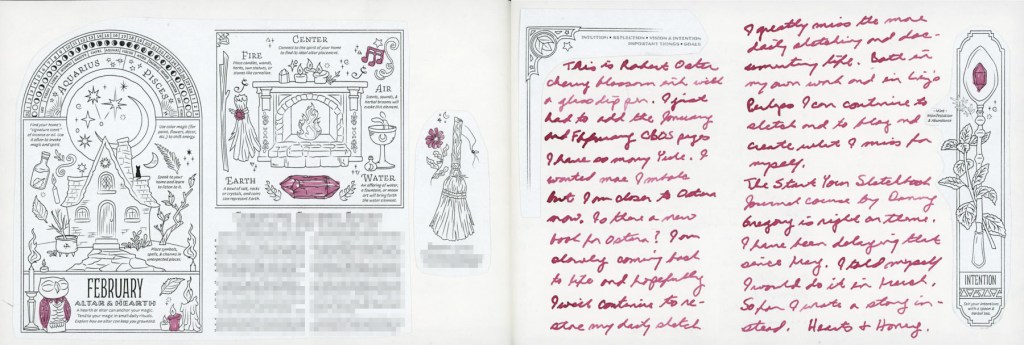 AQUARIUS
PISCES
Find your home's
"signature scent"
of incense or oil. Use
it often to invoke
magic and spirit.
Use color magic (for
paint, flowers, decor,
etc.) to shift energy.
Speak to your
home and learn
to listen to it.
Place symbols,
spells, & charms in
unexpected places.
FEBRUARY
ALTAR & HEARTH
A hearth or altar can anchor your magic.
Tend to your magic in small daily rituals.
Explore how an altar can keep you grounded.
CENTER
Connect to the spirit of your home
to find its ideal altar placement.
FIRE
Place candles, wands,
herbs, sun statues, or
stones like carnelian.
AIR
Scents, sounds, &
herbal brooms will
evoke this element.
EARTH
A bowl of salt, rocks
or crystals, and coins
can represent Earth.
WATER
An offering of water,
a fountain, or moon
art will bring forth
the water element.
INTUITION • REFLECTION • VISION & INTENTION
IMPORTANT THINGS • GOALS
This is Robert Oster
cherry blossom ink with
a glass dip pen. I just
had to add the January
and February CBOS pages
I have so many Yule. I
wanted more Imbolc
but I am closer to Ostara
now. Is there a new
book for Ostara? I am
slowly coming back
to life and hopefully
I will continue to re-
store my daily sketch
I greatly miss the more
daily sketching and doc-
umenting life. Both in
my own work and in
Perhaps I can continue to
sketch and to blog and
create what I miss for
myself.
The Start Your Sketchbook
Journal course by Danny
Gregory is right on theme.
I have been delaying that
since May. I told myself
I would do it in March.
So far I wrote a story in-
stead. Hearts & Honey.
& Abundance
INTENTION
Stir your intentions
with a spoon &
herbal tea.